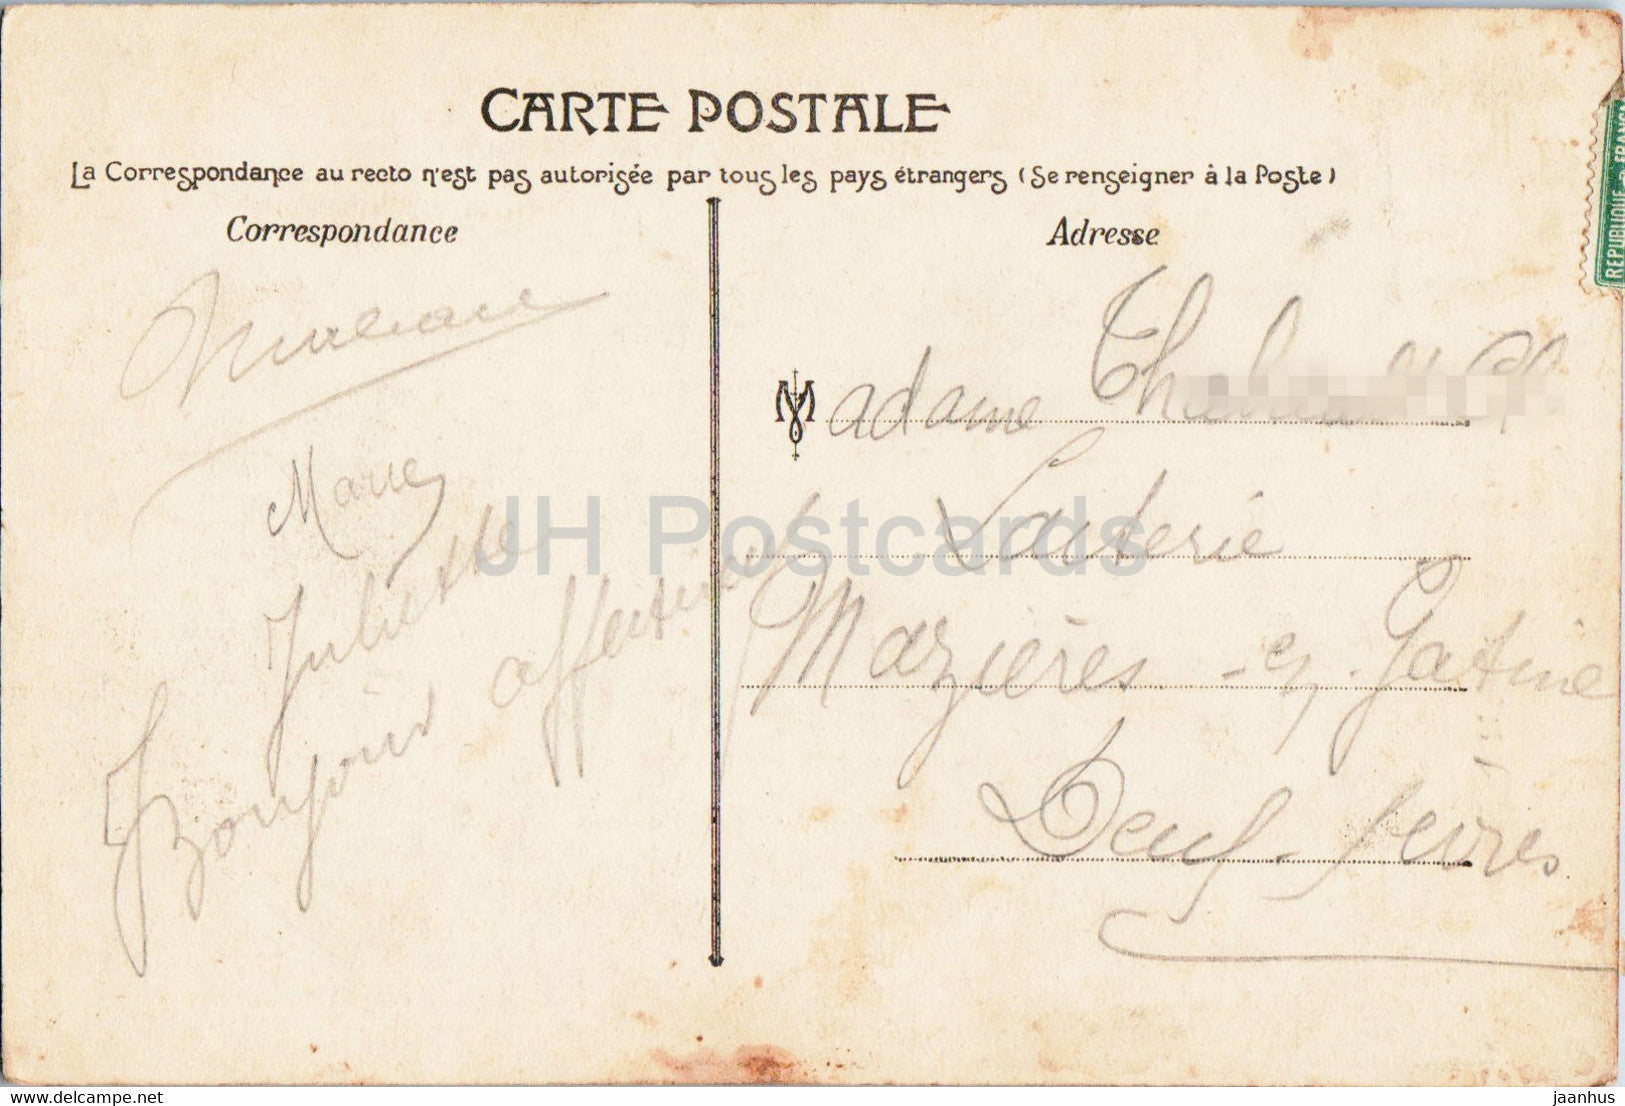 CARTE POSTALE
La Correspondance au recto n'est pas autorisée par tous les pays étrangers (Se renseigner à la Poste)
Correspondance
Marie
Juliette
Bonjour affectueux
Adresse
Madame
Laiterie
Mazières-en-Gatine
Deux-Sèvres
REPUBLIQUE FRANC
JH Postcards
eu.delcampe.net
jaanhus